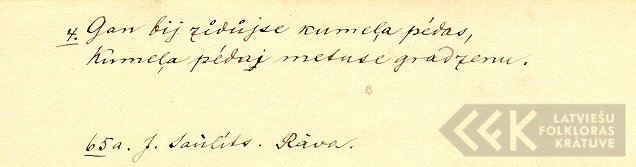 4. Gan bij zīdūjse kumeļa pēdas,
Kumeļa pēdaj metuse gradzenu.
65a. J. Saulīts. Rāva.
LATVIEŠU
FOLKLORAS
KRĀTUVE